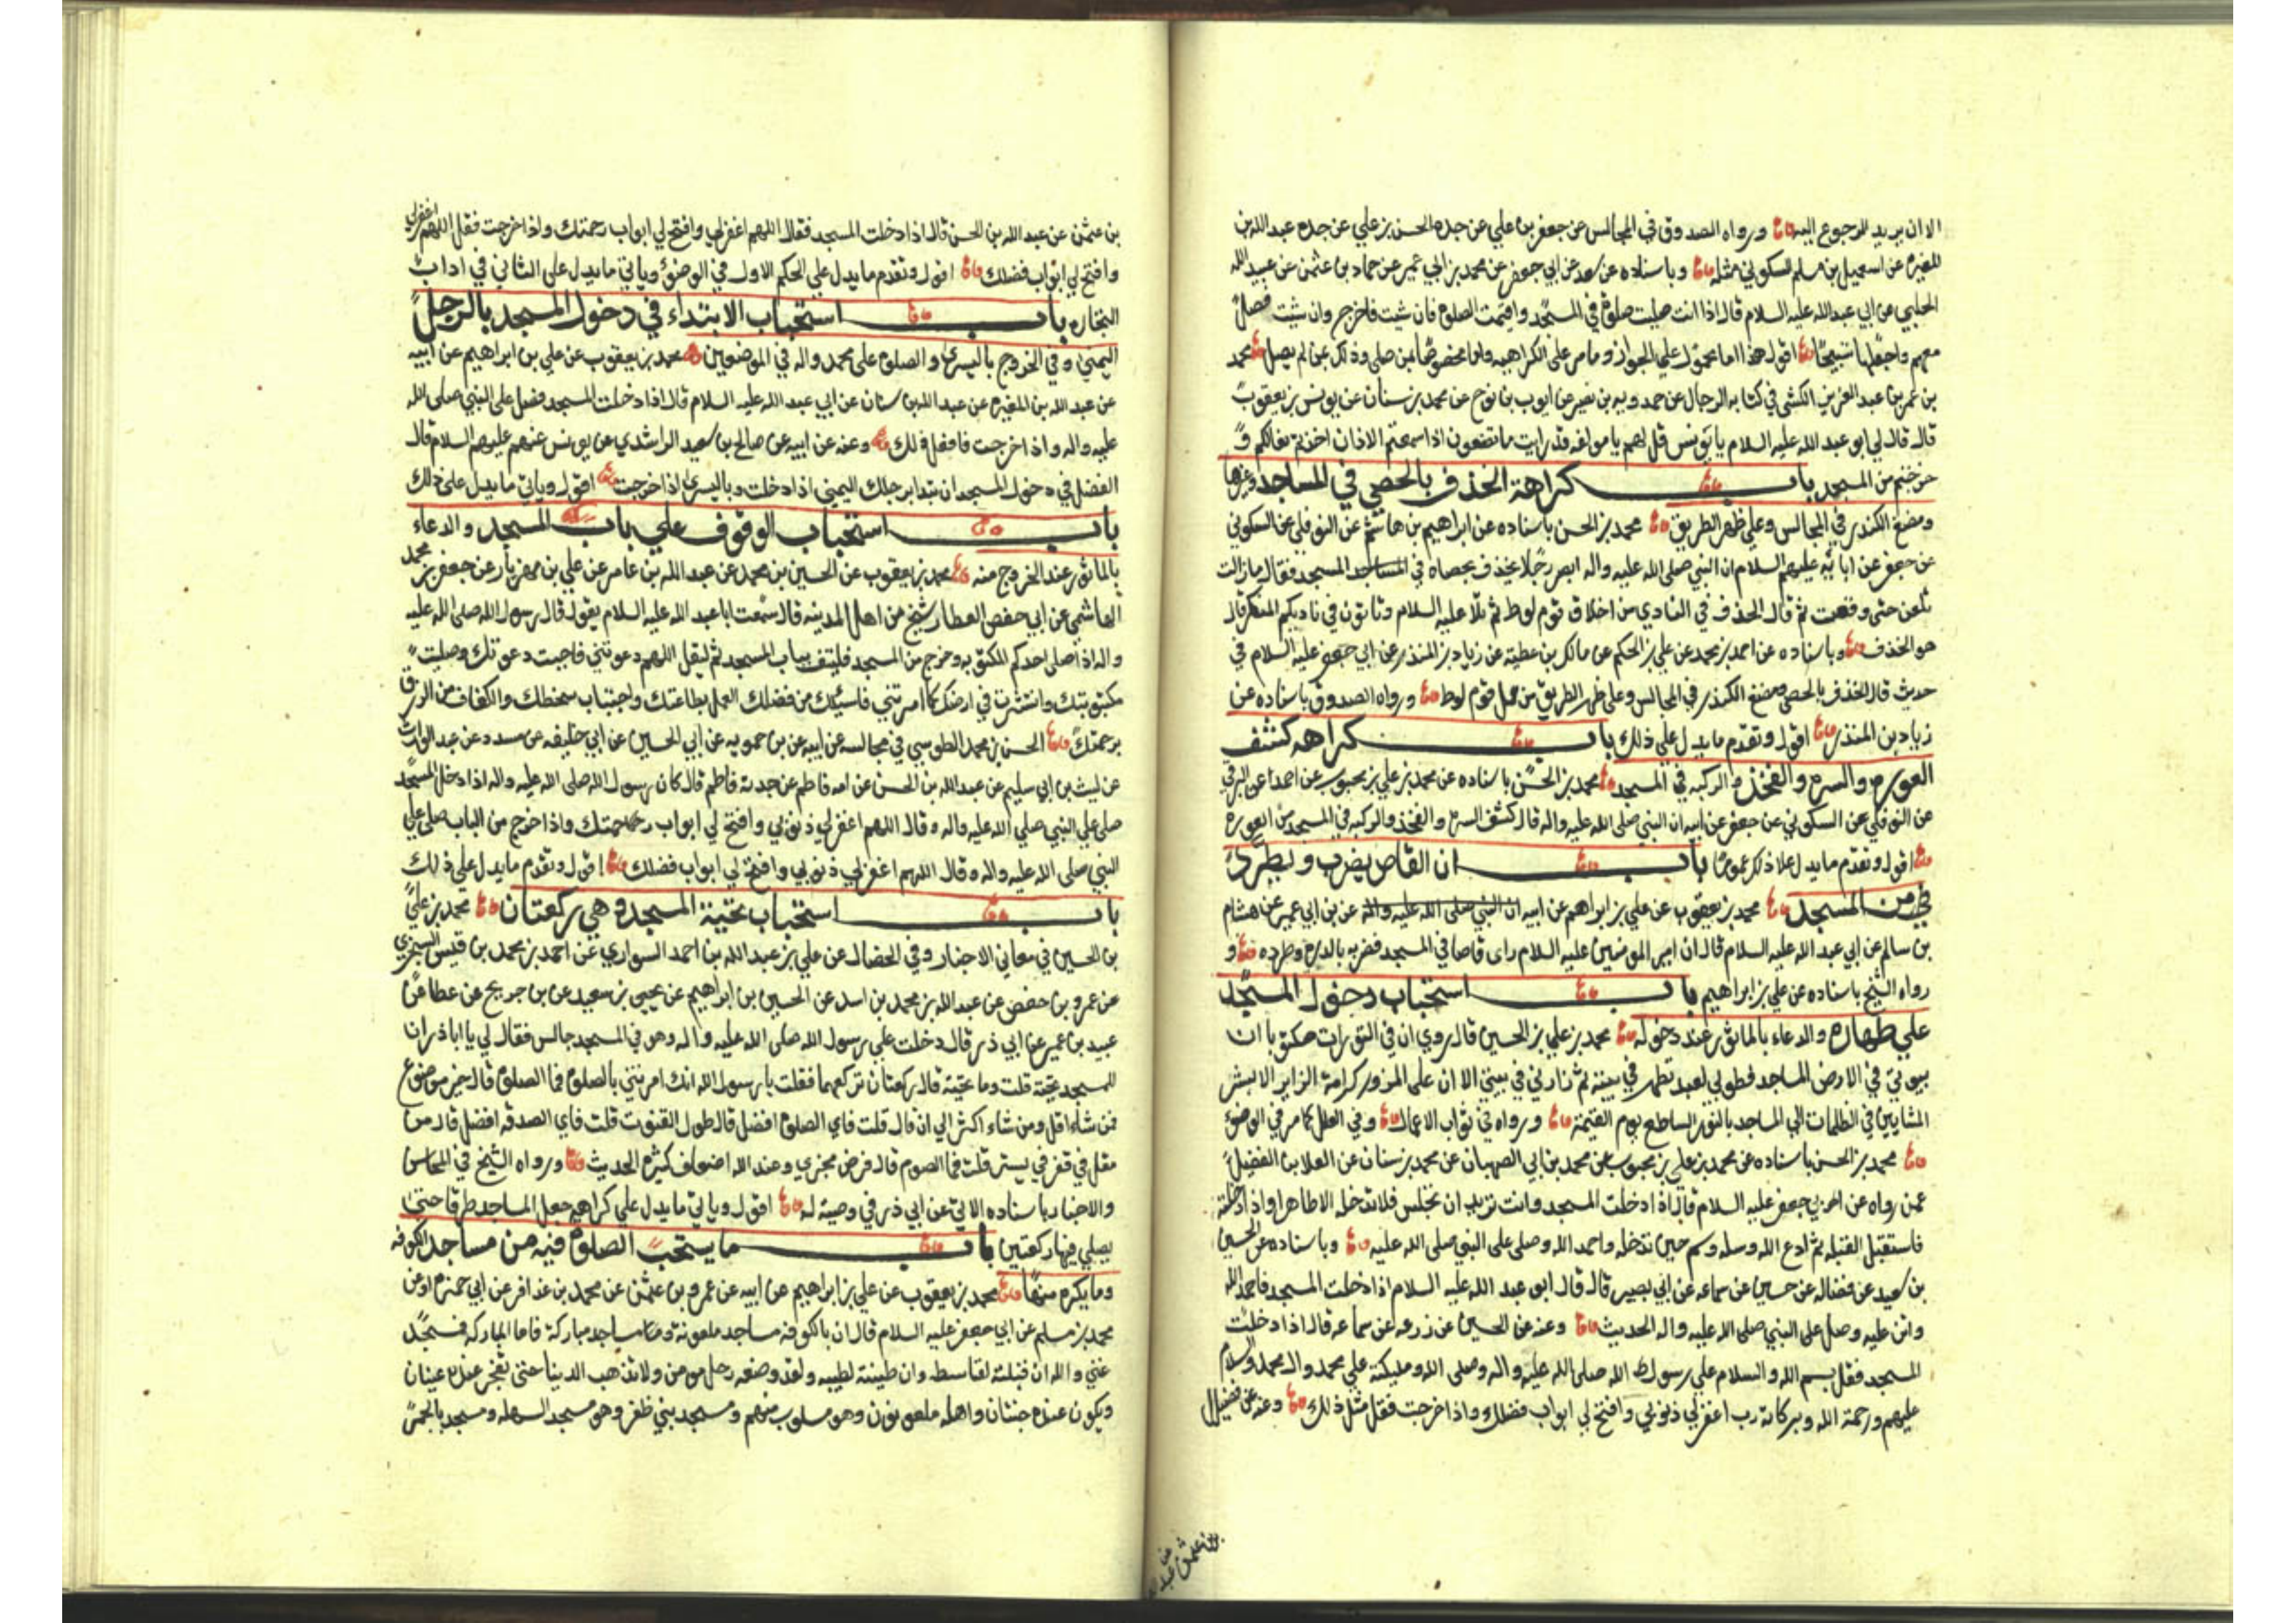 الا ان يريد الرجوع اليه ورواه الصدوق في المجالس عن جعفر بن علي عن جده الحسن بن علي عن جده عبد الله بن
المغيره عن اسمعيل بن مسلم السكوني مثله وباسناده عن سعد عن ابي جعفر عن محمد بن ابي عمير عن حماد بن عثمن عن عبيد الله
الحلبي عن ابي عبد الله عليه السلام قال اذا انت صليت صلوة في المسجد واقيمت الصلوة فان شئت فاخرج وان شئت فصل
معهم واجعلها تسبيحا اقول هذا اما محمول على الجواز وما مر على الكراهيه واما مخصوصا بمن صلى وذلك عن لم يصل محمد
بن عمر بن عبد العزيز الكشى في كتاب الرجال عن حمدويه بن نصير عن ايوب بن نوح عن محمد بن سنان عن يونس بن يعقوب
قال قال لي ابو عبد الله عليه السلام يا يونس قل لهم يا مولفه قد رايت ما تصنعون اذا سمعتم الاذان اخذتم نعالكم و
خرجتم من المسجد باب كراهة الخذف بالحصي في المساجد وغيرها
ومضغ الكندر في المجالس وعلى ظهر الطريق محمد بن الحسن باسناده عن ابراهيم بن هاشم عن النوفلي عن السكوني
عن جعفر عن ابائه عليهم السلام ان النبي صلى الله عليه واله ابصر رجلا يخذف بحصاه في المسجد فقال ما زالت
تلعن حتى وقعت ثم قال الخذف في النادي من اخلاق قوم لوط ثم تلا عليه السلام وتاتون في ناديكم المنكر قال
هو الخذف وباسناده عن احمد بن محمد عن علي بن الحكم عن مالك بن عطيه عن زياد بن المنذر عن ابي جعفر عليه السلام في
حديث قال الخذف بالحصى ومضغ الكندر في المجالس وعلى ظهر الطريق من عمل قوم لوط ورواه الصدوق باسناده عن
زياد بن المنذر اقول وتقدم ما يدل علي ذلك باب كراهه كشف
العوره والسره والفخذ والركبه في المسجد محمد بن الحسن باسناده عن محمد بن علي بن محبوب عن احمد عن البرقي
عن النوفلي عن السكوني عن جعفر عن ابيه ان النبي صلى الله عليه واله قال كشف السرة والفخذ والركبه في المسجد من العوره
اقول وتقدم ما يدل على ذلك عموما باب ان القاص يضرب ويطرد
من المسجد محمد بن يعقوب عن علي بن ابراهيم عن ابيه عن بن ابي عمير عن هشام
بن سالم عن ابي عبد الله عليه السلام قال ان امير المومنين عليه السلام راى قاصا في المسجد فضربه بالدره وطرده و
رواه الشيخ باسناده عن علي بن ابراهيم باب استحباب دخول المسجد
علي طهاره والدعاء بالماثور عند دخوله محمد بن علي بن الحسين قال روي ان في التورات مكتوبا ان
بيوتي في الارض المساجد فطوبي لعبد تطهر في بيته ثم زارني في بيتي الا ان على المزور كرامة الزاير الا بشر
المشايين في الظلمات الى المساجد بالنور الساطع يوم القيمة ورواه في ثواب الاعمال وفي العلل كما مر في الوضوء
محمد بن الحسن باسناده عن محمد بن علي بن محبوب عن محمد بن ابي الصهبان عن محمد بن سنان عن العلا بن الفضيل
عمن رواه عن ابي جعفر عليه السلام قال اذا دخلت المسجد وانت تريد ان تجلس فلا تدخله الا طاهرا واذا دخلته
فاستقبل القبله ثم ادع الله وسله وسم حين تدخله واحمد الله وصلى على النبي صلى الله عليه وباسناده عن الحسين
بن سعيد عن فضاله عن حسين عن سماعه عن ابي بصير قال قال ابو عبد الله عليه السلام اذا دخلت المسجد فاحمد الله
واثن عليه وصل على النبي صلى الله عليه واله الحديث وعنه عن الحسين عن زرعه عن سماعه قال اذا دخلت
المسجد فقل بسم الله والسلام علي رسول الله صلى الله عليه واله وصلى الله ومليكته علي محمد وال محمد والسلام
عليهم ورحمة الله وبركاته رب اغفر لي ذنوبي وافتح لي ابواب فضلك واذا خرجت فقل مثل ذلك وعنه عن فضيل
بن عثمن عن عبد
بن عثمن عن عبد الله بن الحسن قال اذا دخلت المسجد فقال اللهم اغفر لي وافتح لي ابواب رحمتك واذا خرجت فقل اللهم اغفر لي
وافتح لي ابواب فضلك اقول وتقدم ما يدل علي الحكم الاول في الوضوء وياتي ما يدل على الثاني في اداب
التجاره باب استحباب الابتداء في دخول المسجد بالرجل
اليمني وفي الخروج باليسرى والصلوة على محمد واله في الموضعين محمد بن يعقوب عن علي بن ابراهيم عن ابيه
عن عبد الله بن المغيره عن عبد الله بن سنان عن ابي عبد الله عليه السلام قال اذا دخلت المسجد فصل على النبي صلى الله
عليه واله واذا خرجت فافعل ذلك وعنه عن ابيه عن صالح بن سعيد الراشدي عن يونس عنهم عليهم السلام قال
الفضل في دخول المسجد ان تبدا برجلك اليمنى اذا دخلت وباليسرى اذا خرجت اقول وياتي ما يدل على ذلك
باب استحباب الوقوف علي باب المسجد والدعاء
بالماثور عند الخروج منه محمد بن يعقوب عن الحسين بن محمد عن عبد الله بن عامر عن علي بن مهزيار عن جعفر بن محمد
الهاشمي عن ابي حفص العطار شيخ من اهل المدينه قال سمعت ابا عبد الله عليه السلام يقول قال رسول الله صلى الله عليه
واله اذا صلى احدكم المكتوبه وخرج من المسجد فليقف بباب المسجد ثم ليقل اللهم دعوتني فاجبت دعوتك وصليت
مكتوبتك وانتشرت في ارضك كما امرتني فاسئلك من فضلك العمل بطاعتك واجتناب سخطك والكفاف من الرزق
برحمتك الحسن بن محمد الطوسي في مجالسه عن ابيه عن بن حمويه عن ابي الحسين عن ابي خليفه عن مسدد عن عبد الوارث
عن ليث بن ابي سليم عن عبد الله بن الحسن عن امه فاطم عن جدته فاطم قال كان رسول الله صلى الله عليه واله اذا دخل المسجد
صلى علي النبي صلي الله عليه واله وقال اللهم اغفر لي ذنوبي وافتح لي ابواب رحمتك واذا خرج من الباب صلى علي
النبي صلى الله عليه واله وقال اللهم اغفر لي ذنوبي وافتح لي ابواب فضلك اقول وتقدم ما يدل على ذلك
باب استحباب تحية المسجد وهي ركعتان محمد بن علي
بن الحسين في معاني الاخبار وفي الخصال عن علي بن عبد الله بن احمد السواري عن احمد بن محمد بن قيس السجزي
عن عمرو بن حفص عن عبد الله بن محمد بن اسد عن الحسين بن ابراهيم عن يحيي بن سعيد عن بن جريج عن عطا عن
عبيد بن عمير عن ابي ذر قال دخلت علي رسول الله صلى الله عليه واله وهو في المسجد جالس فقال لي يا ابا ذر ان
للمسجد تحية قلت وما تحيته قال ركعتان تركعهما فقلت يا رسول الله انك امرتني بالصلوة فما الصلوة قال خير موضوع
فمن شاء اقل ومن شاء اكثر الي ان قال قلت فاي الصلوة افضل قال طول القنوت قلت فاي الصدقه افضل قال جهد من
مقل في فقر في يستر قلت فما الصوم قال فرض مجزي وعند الله اضعاف كثيرة الحديث ورواه الشيخ في المجالس
والاخبار باسناده الاتي عن ابي ذر في وصية له اقول وياتي ما يدل علي كراهه جعل المساجد طرقا حتى
يصلي فيها ركعتين باب ما يستحب الصلوة فيه من مساجد الكوفه
وما يكره منها محمد بن يعقوب عن علي بن ابراهيم عن ابيه عن عمرو بن عثمن عن محمد بن عذافر عن ابي حمزه او عن
محمد بن مسلم عن ابي جعفر عليه السلام قال ان بالكوفه مساجد ملعونة ومساجد مباركة فاما المباركه فمسجد
غني والله ان قبلته لقاسط وان طينته لطيبه ولقد وضعه رجل مومن ولا تذهب الدنيا حتى تفجر عنده عينان
ويكون عنده جنتان واهله ملعونون وهو مسلوب منهم ومسجد بني ظفر وهو مسجد السهله ومسجد بالخمر